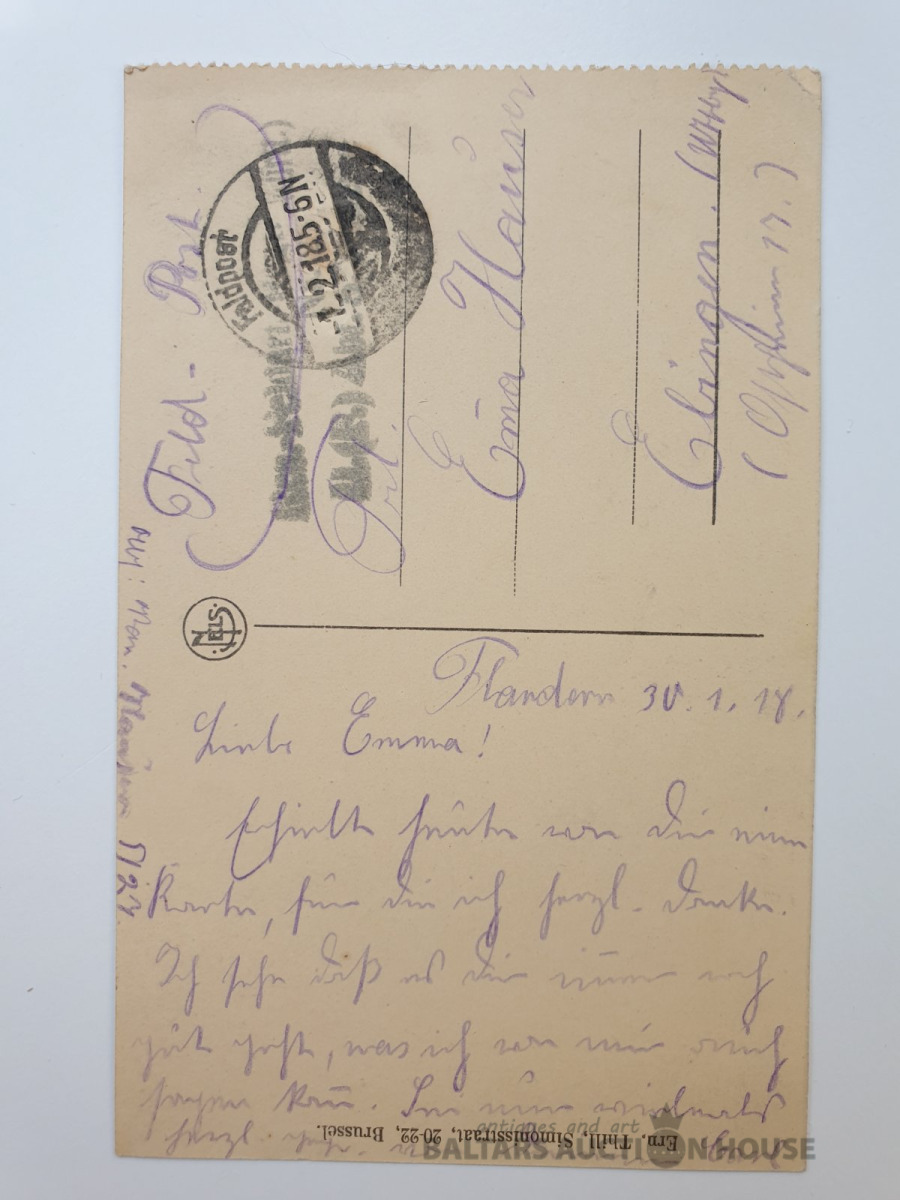 Feld-Post.
Feldpost
-1.2.18 5-6 N
Frl.
Emma Hauser
Ebingen. (Wttbg
NELS
Flandern 30.1.18.
Liebe Emma!
Erhielt heute von Dir eine
Karte, für die ich herzl. danke.
Ich sehe daß es Dir immer noch
gut geht, was ich von mir auch
sagen kann. Sei nun vielmals
herzl.
Ern. Thill, Simonisstraat, 20-22, Brussel.
antiques and art
BALTARS AUCTION HOUSE